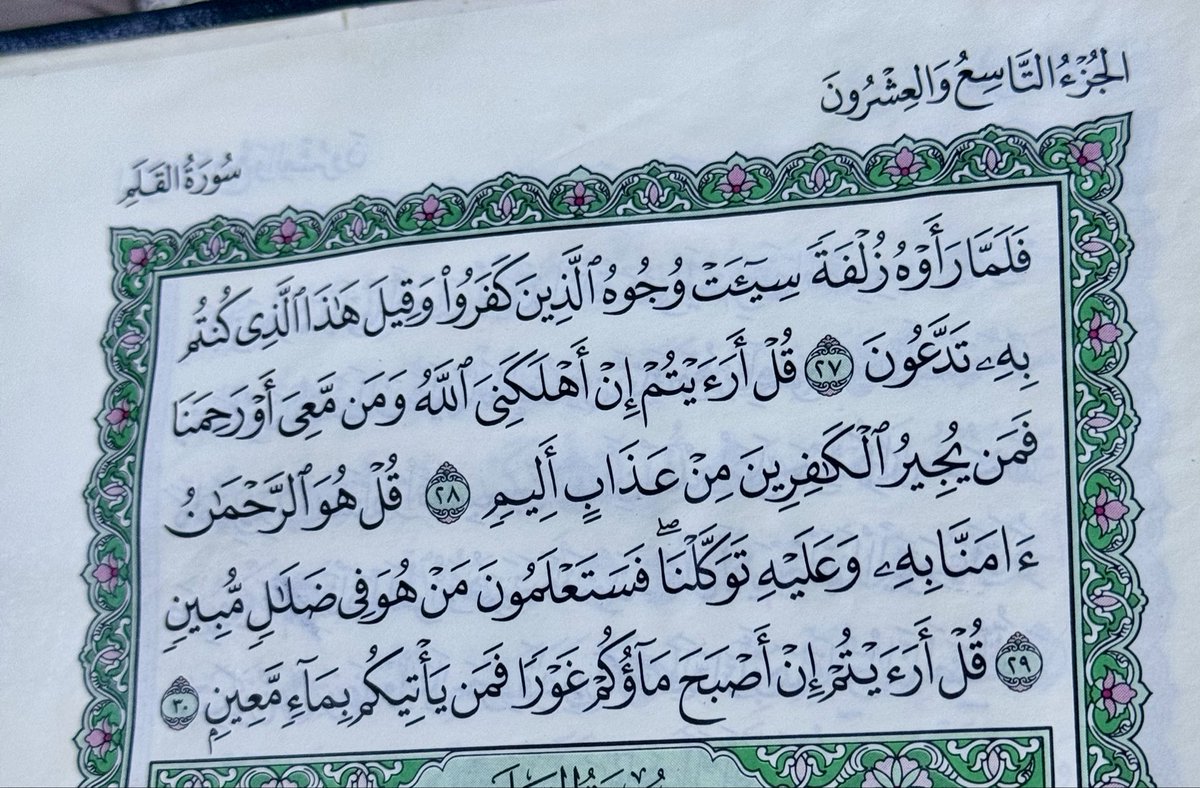 الجُزْءُ التَّاسِعُ وَالعِشْرُونَ
سُورَةُ القَلَمِ
فَلَمَّا رَأَوْهُ زُلْفَةً سِيٓـَٔتْ وُجُوهُ ٱلَّذِينَ كَفَرُوا۟ وَقِيلَ هَٰذَا ٱلَّذِى كُنتُم
بِهِۦ تَدَّعُونَ ٢٧ قُلْ أَرَءَيْتُمْ إِنْ أَهْلَكَنِىَ ٱللَّهُ وَمَن مَّعِىَ أَوْ رَحِمَنَا
فَمَن يُجِيرُ ٱلْكَٰفِرِينَ مِنْ عَذَابٍ أَلِيمٍ ٢٨ قُلْ هُوَ ٱلرَّحْمَٰنُ
ءَامَنَّا بِهِۦ وَعَلَيْهِ تَوَكَّلْنَاۖ فَسَتَعْلَمُونَ مَنْ هُوَ فِى ضَلَٰلٍ مُّبِينٍ
٢٩ قُلْ أَرَءَيْتُمْ إِنْ أَصْبَحَ مَآؤُكُمْ غَوْرًا فَمَن يَأْتِيكُم بِمَآءٍ مَّعِينٍ ٣٠